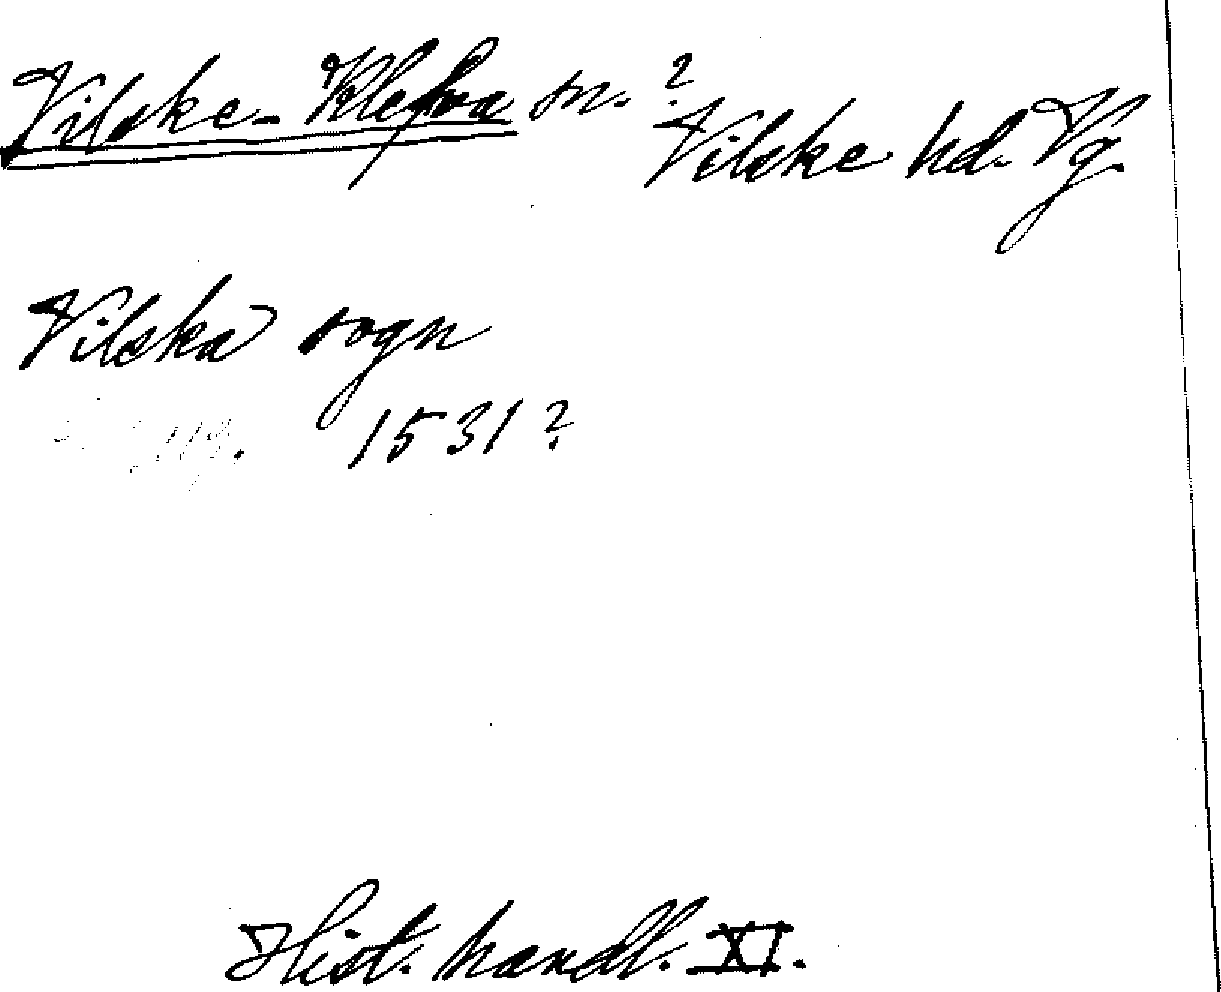 Vilske-Klefva sn.?
Vilske hd. Vg.
Vilska sogn
1531?
Hist. handl. XI.